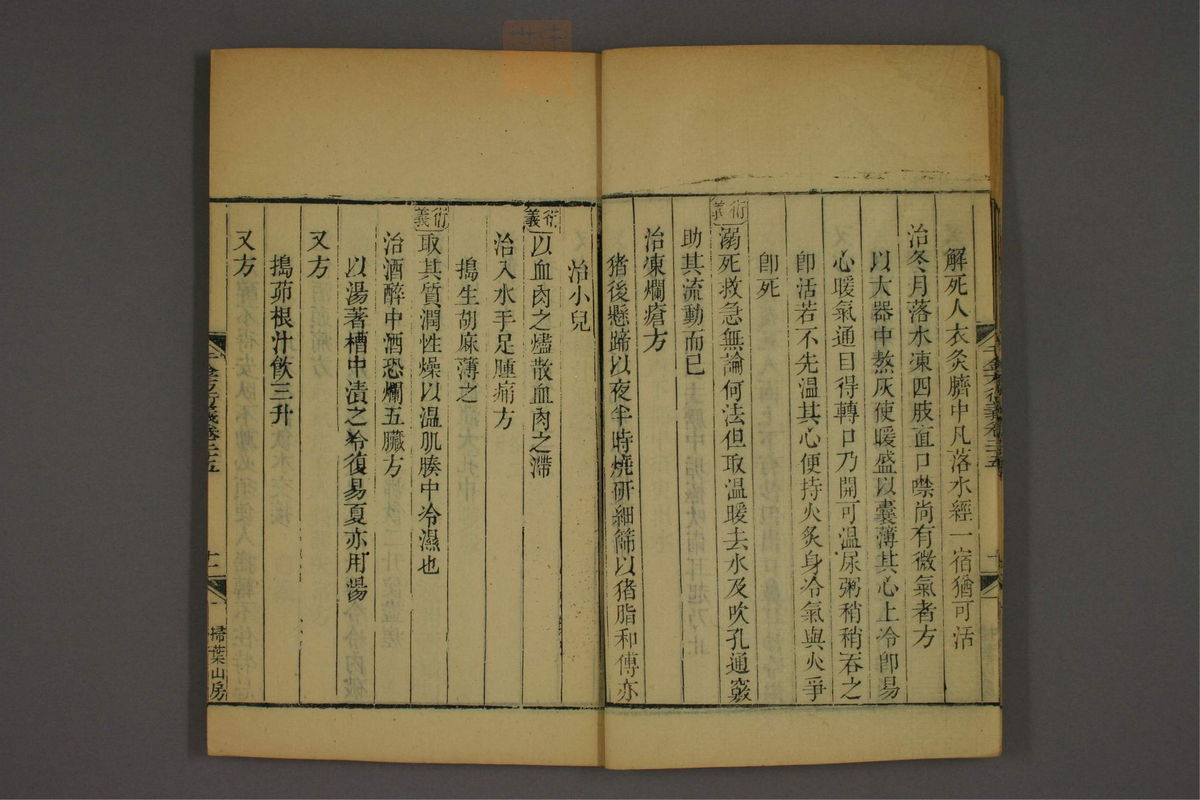 解死人衣灸臍中凡落水經一宿猶可活
治冬月落水凍四肢直口噤尚有微氣者方
以大器中熬灰使暖盛以囊薄其心上冷卽易
心暖氣通目得轉口乃開可温尿粥稍稍吞之
卽活若不先温其心便持火炙身冷氣與火爭
卽死
衍義
溺死救急無論何法但取温暖去水及吹孔通竅
助其流動而已
治凍爛瘡方
猪後懸蹄以夜半時燒研細篩以猪脂和傅亦
治小兒
衍義
以血肉之燼散血肉之滯
治入水手足腫痛方
搗生胡麻薄之
衍義
取其質潤性燥以温肌腠中冷濕也
治酒醉中酒恐爛五臟方
以湯著槽中漬之冷復易夏亦用湯
又方
搗茆根汁飮三升
又方
千金方衍義卷二十五
十一
掃葉山房